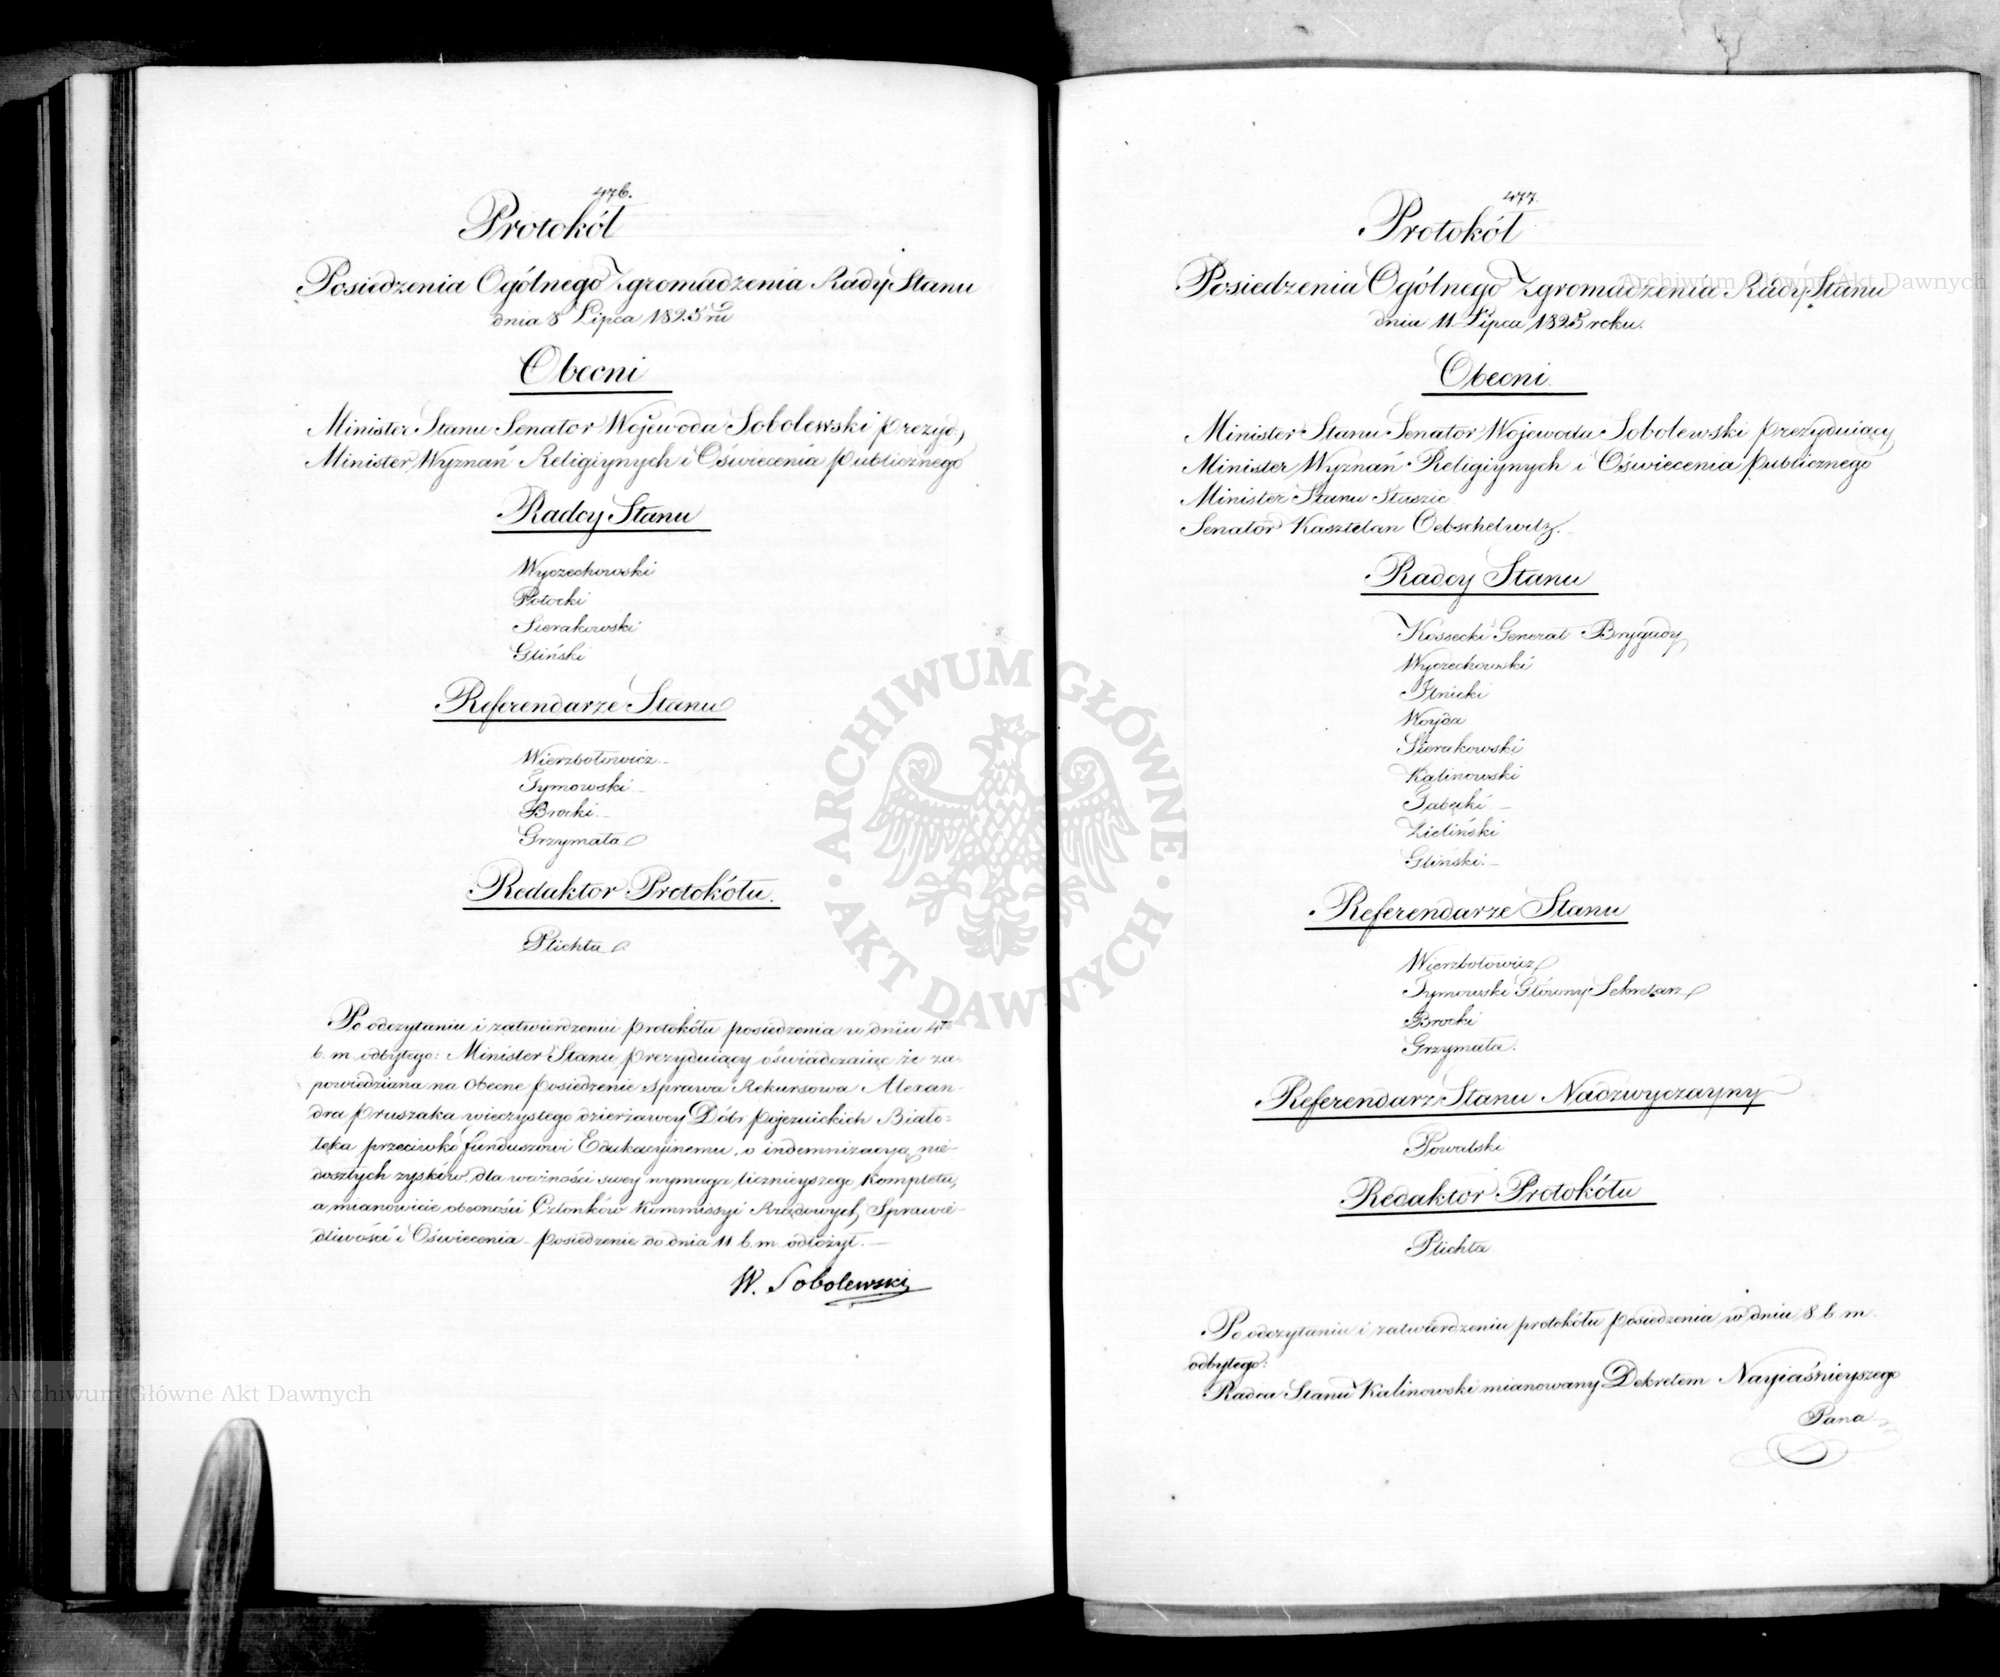 476.
Protokół
Posiedzenia Ogólnego Zgromadzenia Rady Stanu
dnia 8 Lipca 1825 ru
Obecni
Minister Stanu Senator Wojewoda Sobolewski prezyd,
Minister Wyznań Religiynych i Oświecenia publicznego
Radcy Stanu
Wyczechowski
Potocki
Sierakowski
Gliński
Referendarze Stanu
Wierzbołowicz
Tymowski
Brocki
Grzymała
Redaktor Protokółu.
Plichta
Po odczytaniu i zatwierdzeniu protokółu posiedzenia w dniu 4to
b. m. odbytego: Minister Stanu prezyduiący oświadczaiąc że za-
powiedziana na obecne posiedzenie sprawa Rekursowa Alexan-
dra Pruszaka wieczystego dzierżawcy Dóbr pojezuickich Biało-
łęka przeciwko funduszowi Edukacyjnemu, o indemnizacyą nie-
doszłych zysków, dla ważności swey wymaga licznieyszego kompletu,
a mianowicie obecności Członków Kommissyi Rządowych Sprawie-
dliwości i Oświecenia posiedzenie do dnia 11 b. m. odłożył.
W. Sobolewski
477.
Protokół
Posiedzenia Ogólnego Zgromadzenia Rady Stanu
dnia 11 Lipca 1825 roku.
Obecni.
Minister Stanu Senator Wojewoda Sobolewski prezyduiący
Minister Wyznań Religiynych i Oświecenia publicznego
Minister Stanu Staszic
Senator Kasztelan Oebschelwitz.
Radcy Stanu
Kossecki Generał Brygady
Wyczechowski
Ilnicki
Woyda
Sierakowski
Kalinowski
Tabęcki
Zieliński
Gliński.
Referendarze Stanu
Wierzbołowicz
Tymowski Główny Sekretarz
Brocki
Grzymała.
Referendarz Stanu Nadzwyczayny
Powalski
Redaktor Protokółu
Plichta
Po odczytaniu i zatwierdzeniu protokółu posiedzenia w dniu 8 b. m.
odbytego:
Radca Stanu Kalinowski mianowany Dekretem Nayiaśnieyszego
Pana
ARCHIWUM GŁÓWNE AKT DAWNYCH
Archiwum Główne Akt Dawnych
Archiwum Główne Akt Dawnych